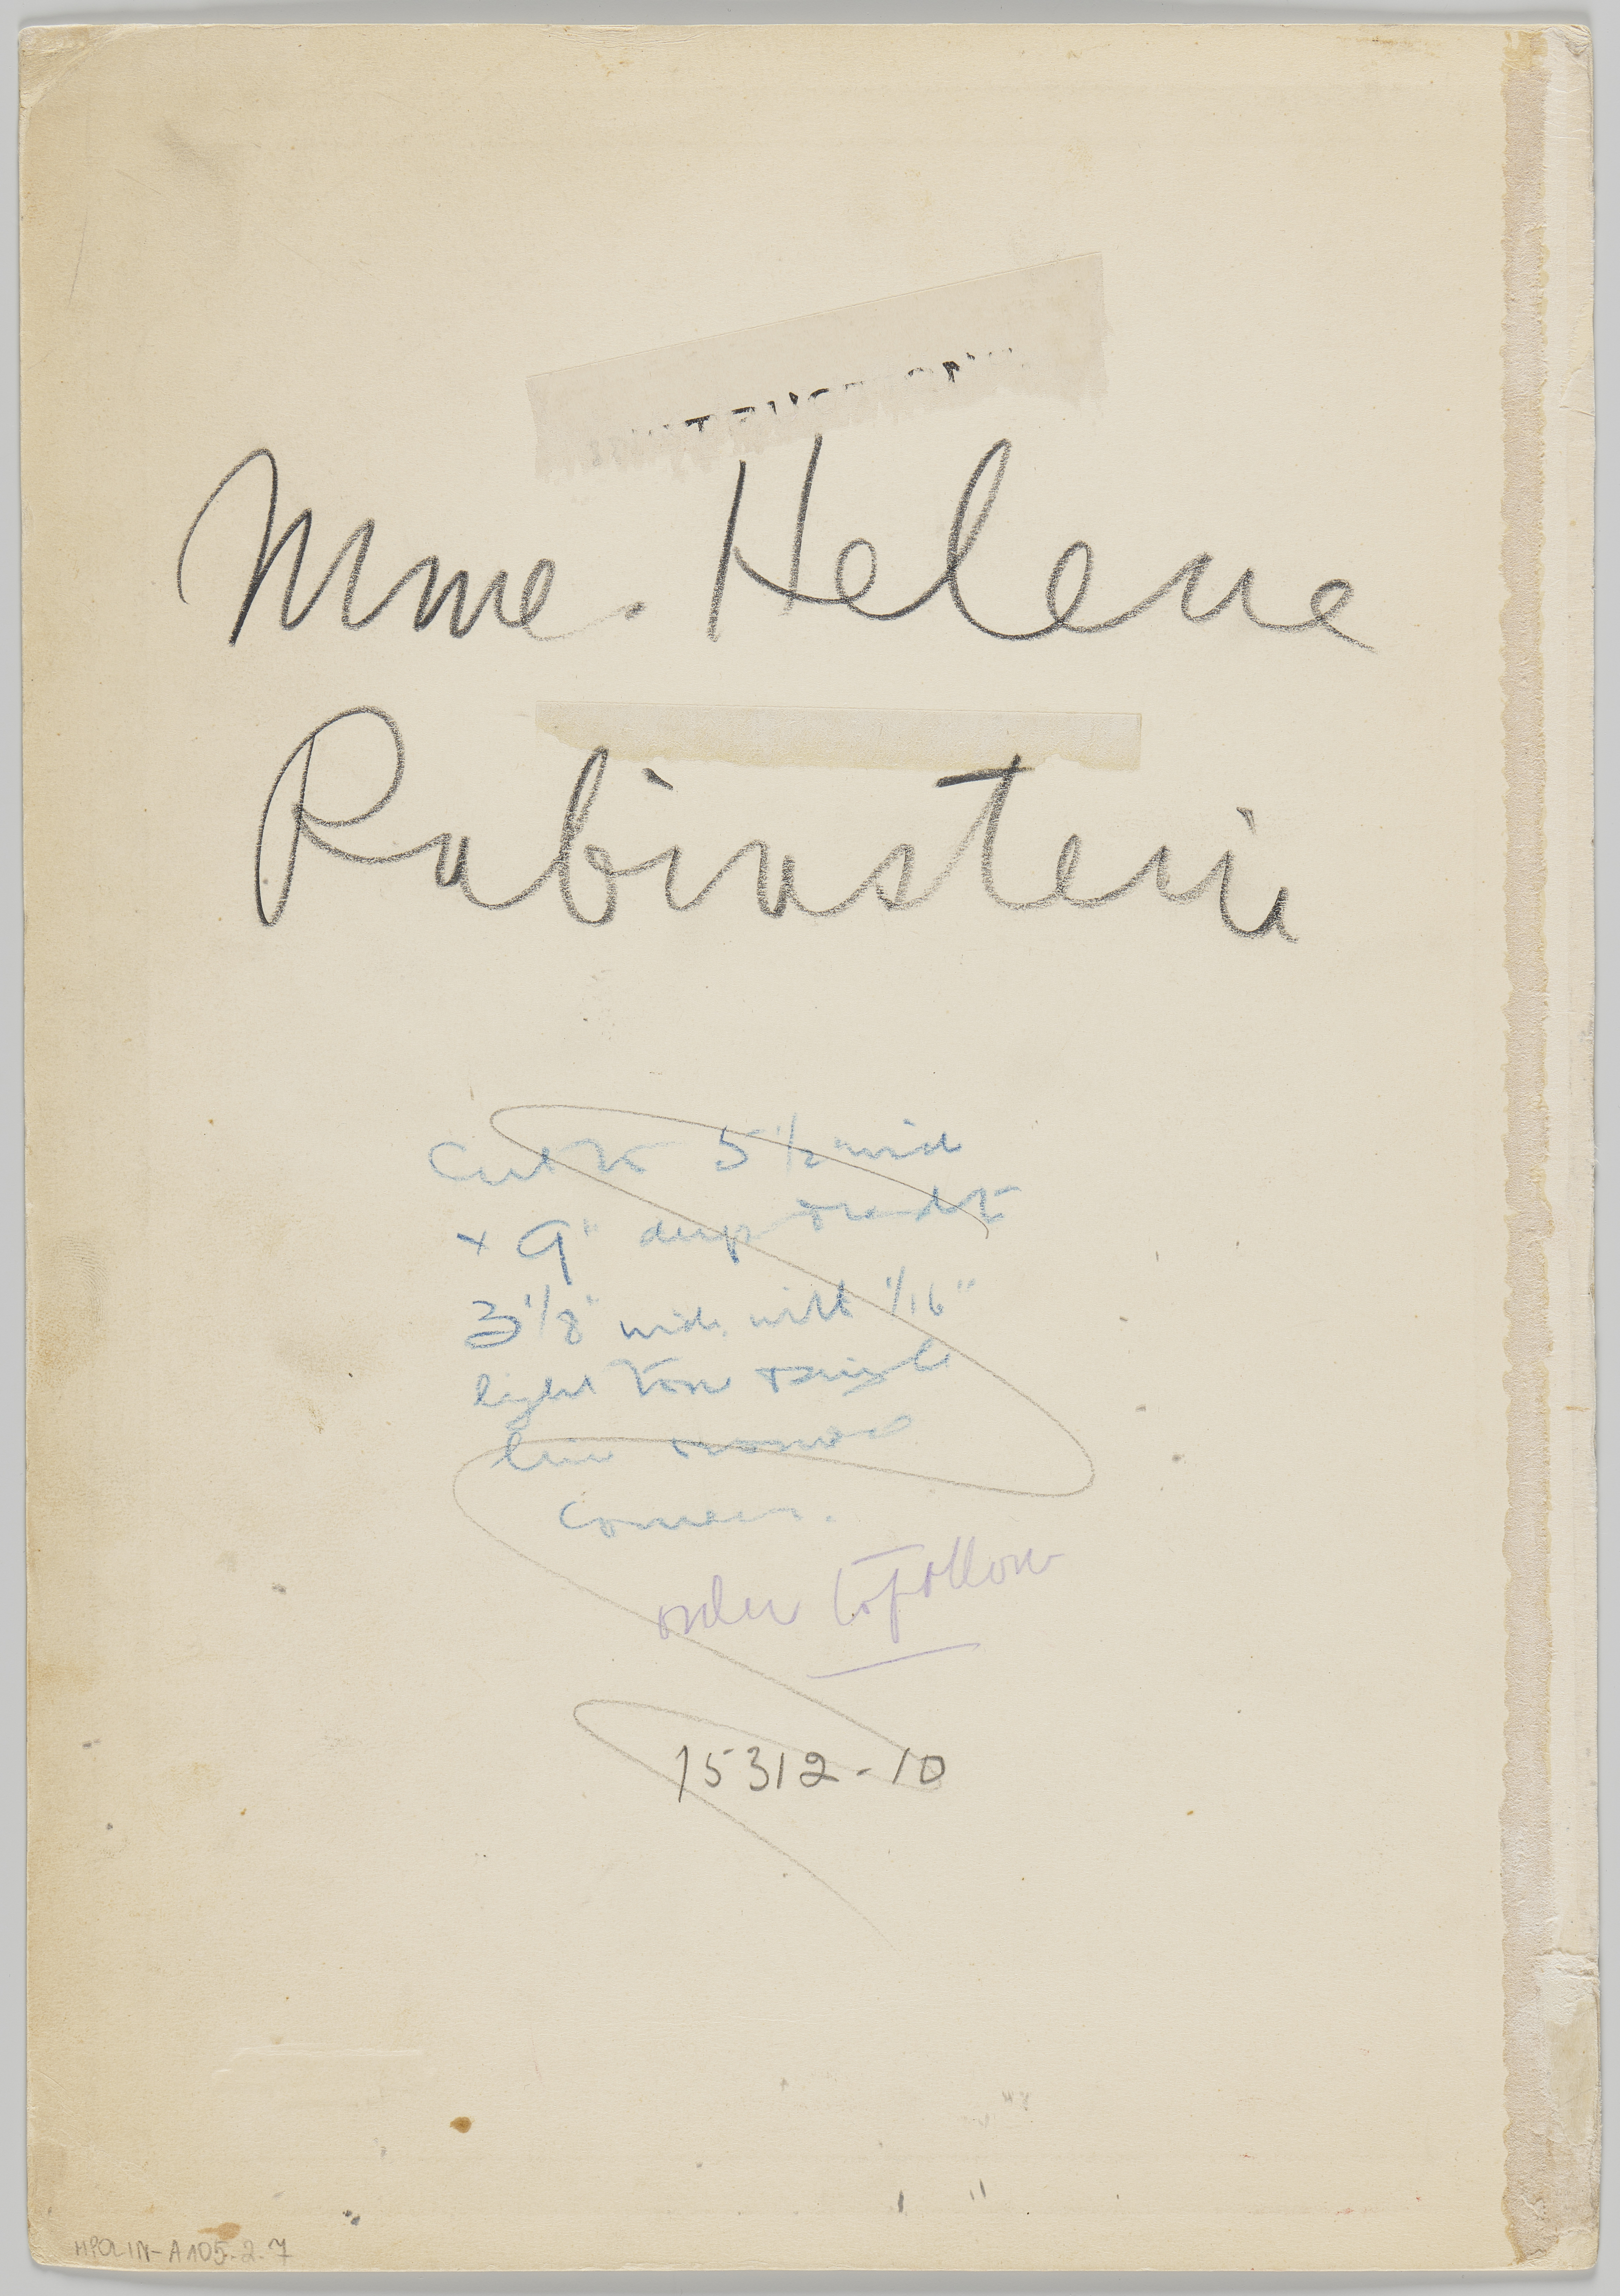 Mme. Helena
Rubinstein
Cut to 5 1/2 wide
+ 9" deep
3 1/8" wide with 1/16"
light tone single
line
corners.
order to follow
15312-10
MPOLIN-A105.2.7